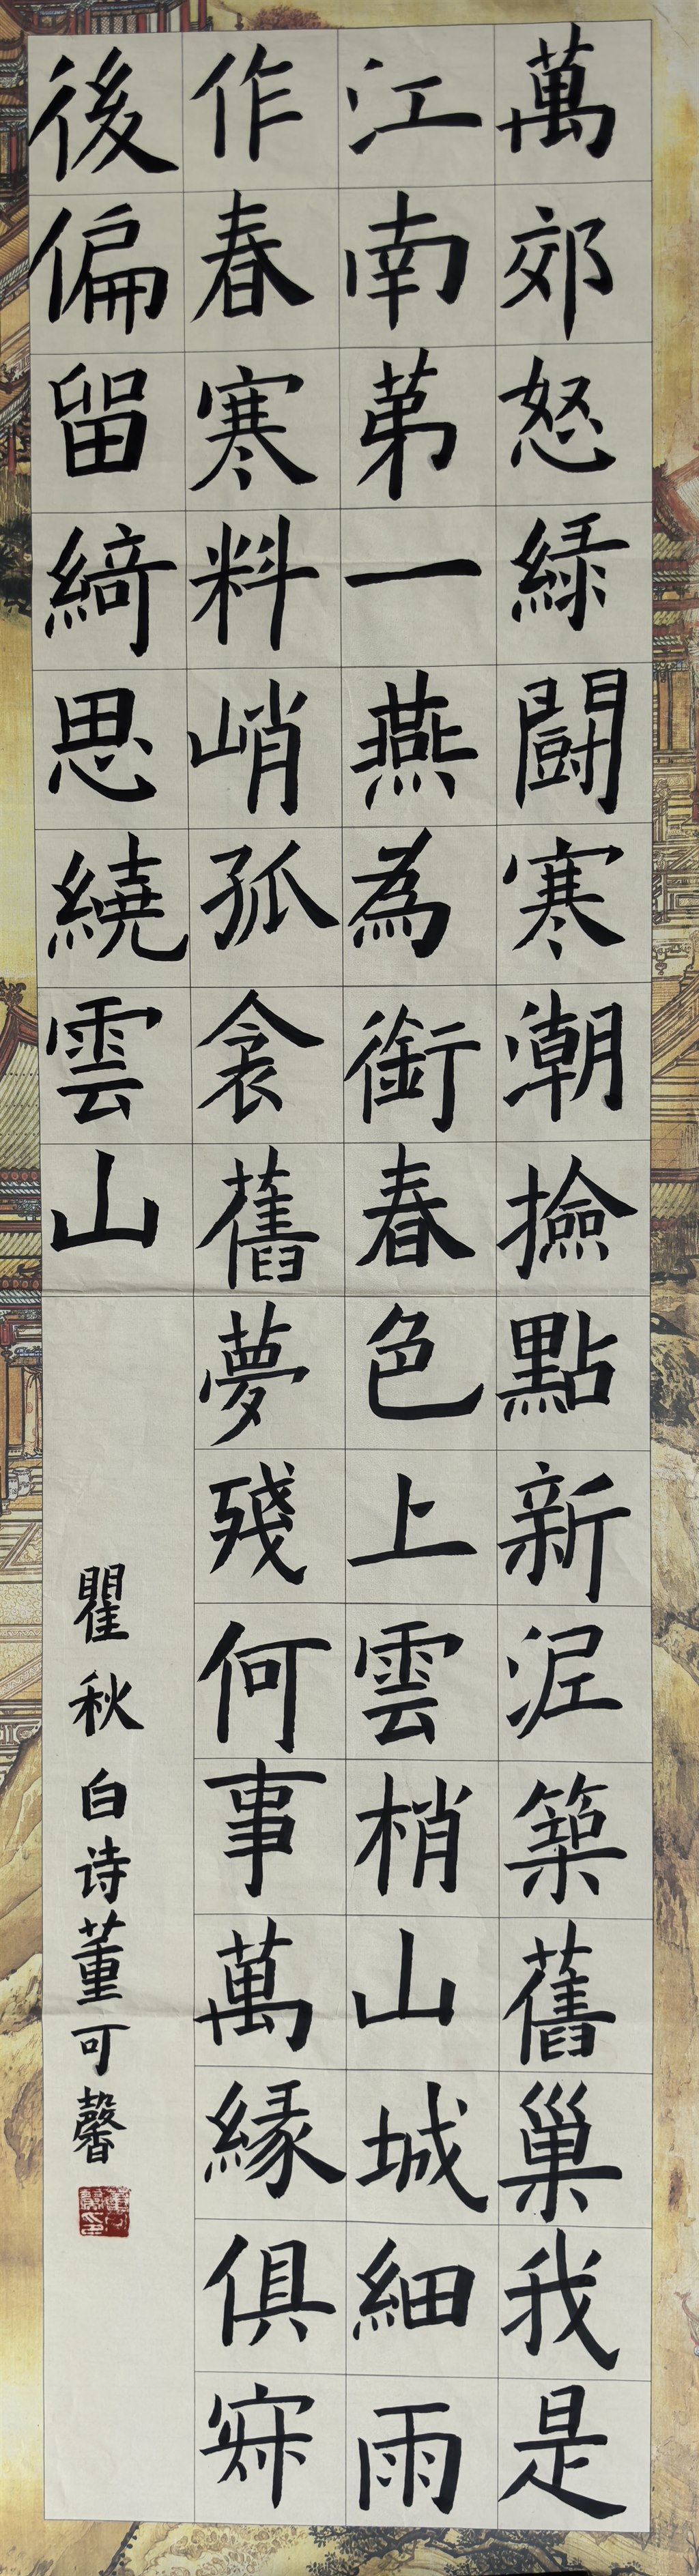 萬郊怒緑鬪寒潮撿點新泥築舊巢我是
江南苐一燕為銜春色上雲梢山城細雨
作春寒料峭孤衾舊夢殘何事萬緣俱寂
後偏留綺思繞雲山
瞿秋白诗董可馨